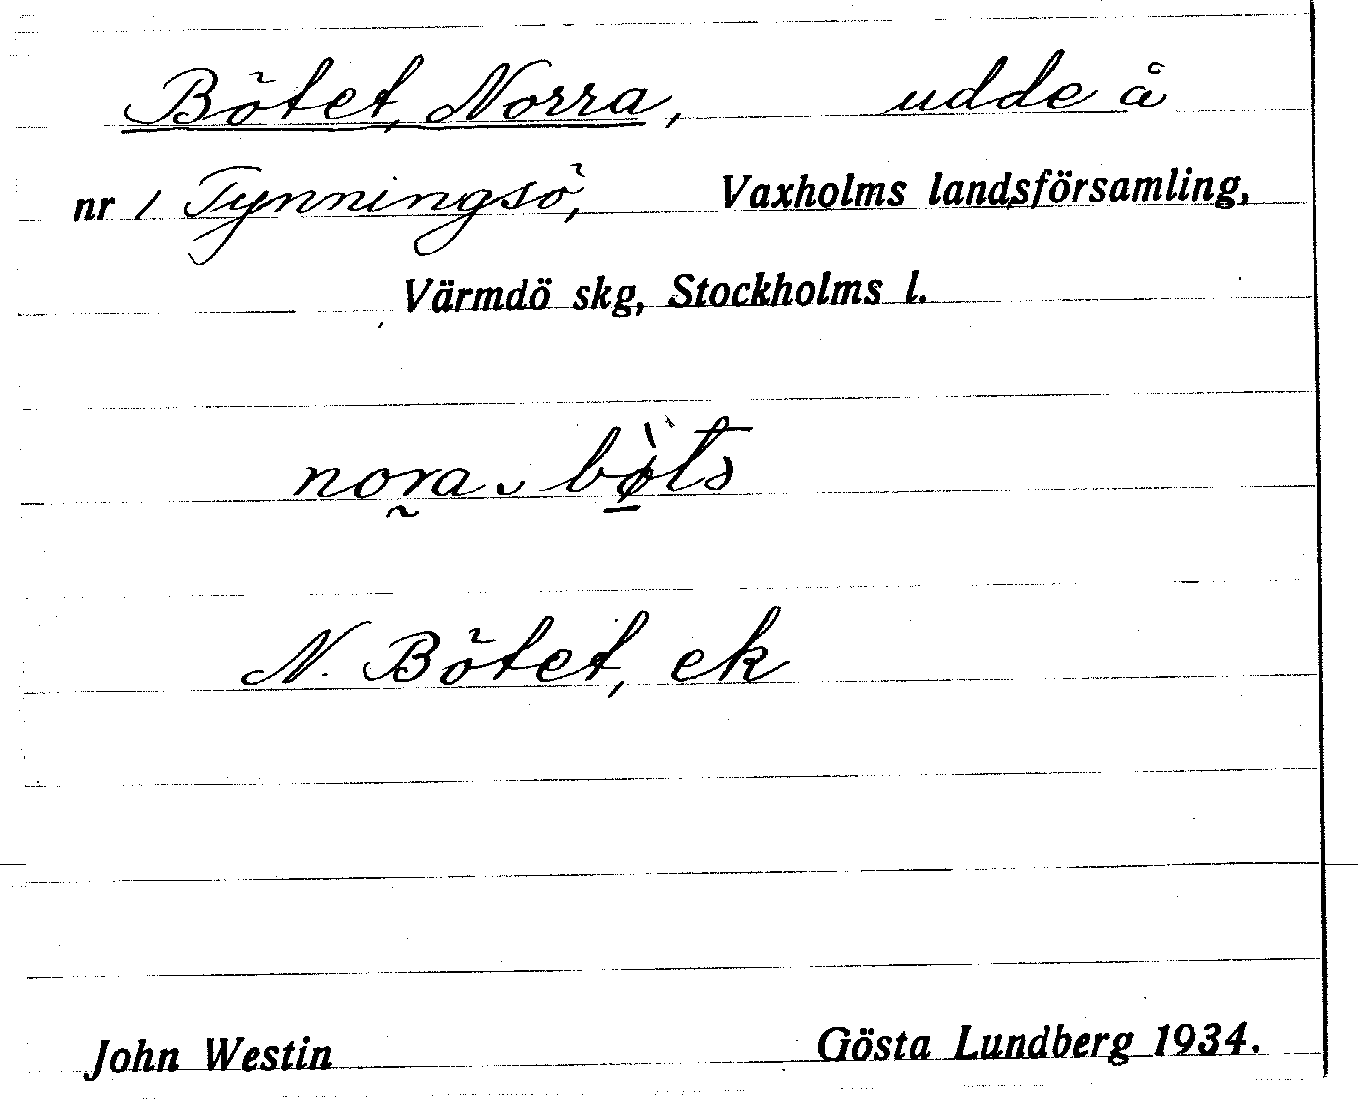 Bötet, Norra, udde å
nr 1 Tynningsö, Vaxholms landsförsamling,
Värmdö skg, Stockholms l.
nora
N. Bötet, ek
John Westin Gösta Lundberg 1934.